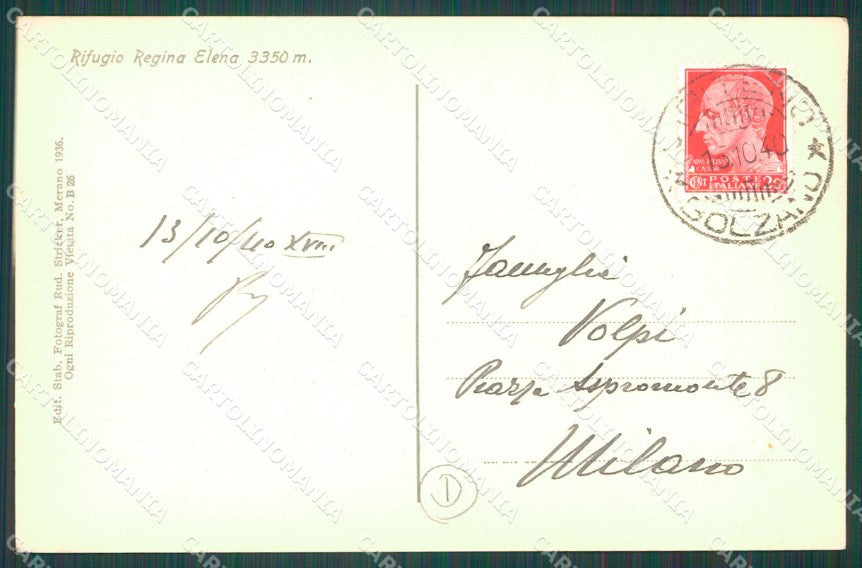 Rifugio Regina Elena 3350 m.
Edit. Stab. Fotograf Rud. Stricker, Merano 1936.
Ogni Riproduzione Vietata No. B 26
13/10/40 XVIII
POSTE
ITALIANE
CENT 20
13.10.40
BOLZANO
Famiglia
Volpi
Piazza Aspromonte 8
Milano
D
CARTOLINOMANIA